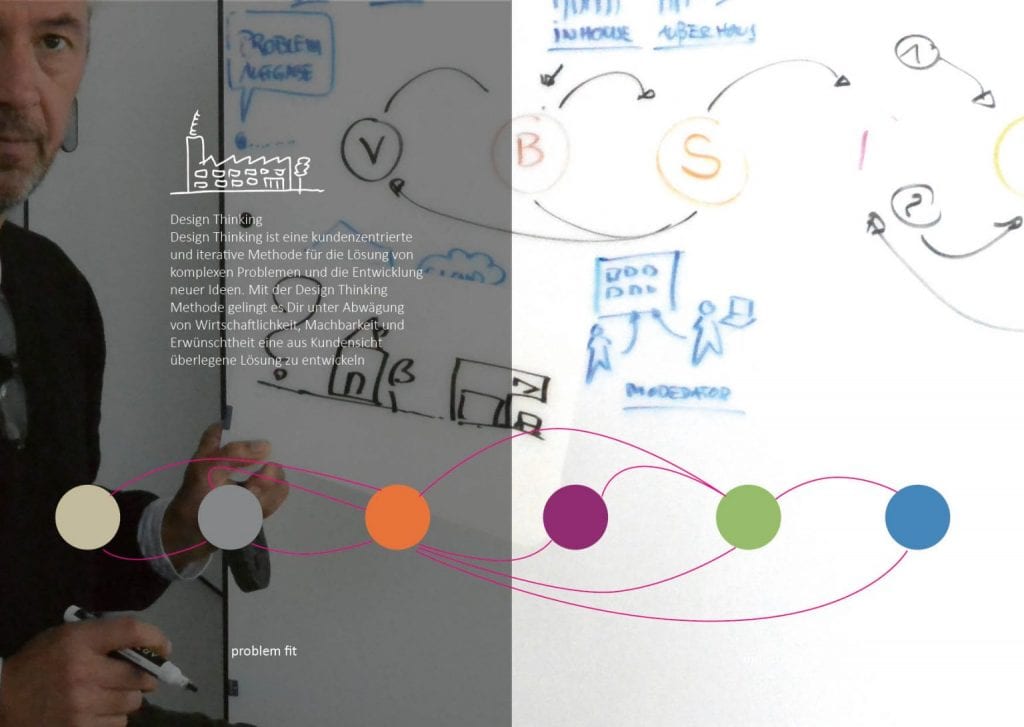 PROBLEM
AUFGABE
INHOUSE
AUßERHAUS
1
V
B
S
2
Design Thinking
Design Thinking ist eine kundenzentrierte
und iterative Methode für die Lösung von
komplexen Problemen und die Entwicklung
neuer Ideen. Mit der Design Thinking
Methode gelingt es Dir unter Abwägung
von Wirtschaftlichkeit, Machbarkeit und
Erwünschtheit eine aus Kundensicht
überlegene Lösung zu entwickeln
n
B
MODERATOR
problem fit